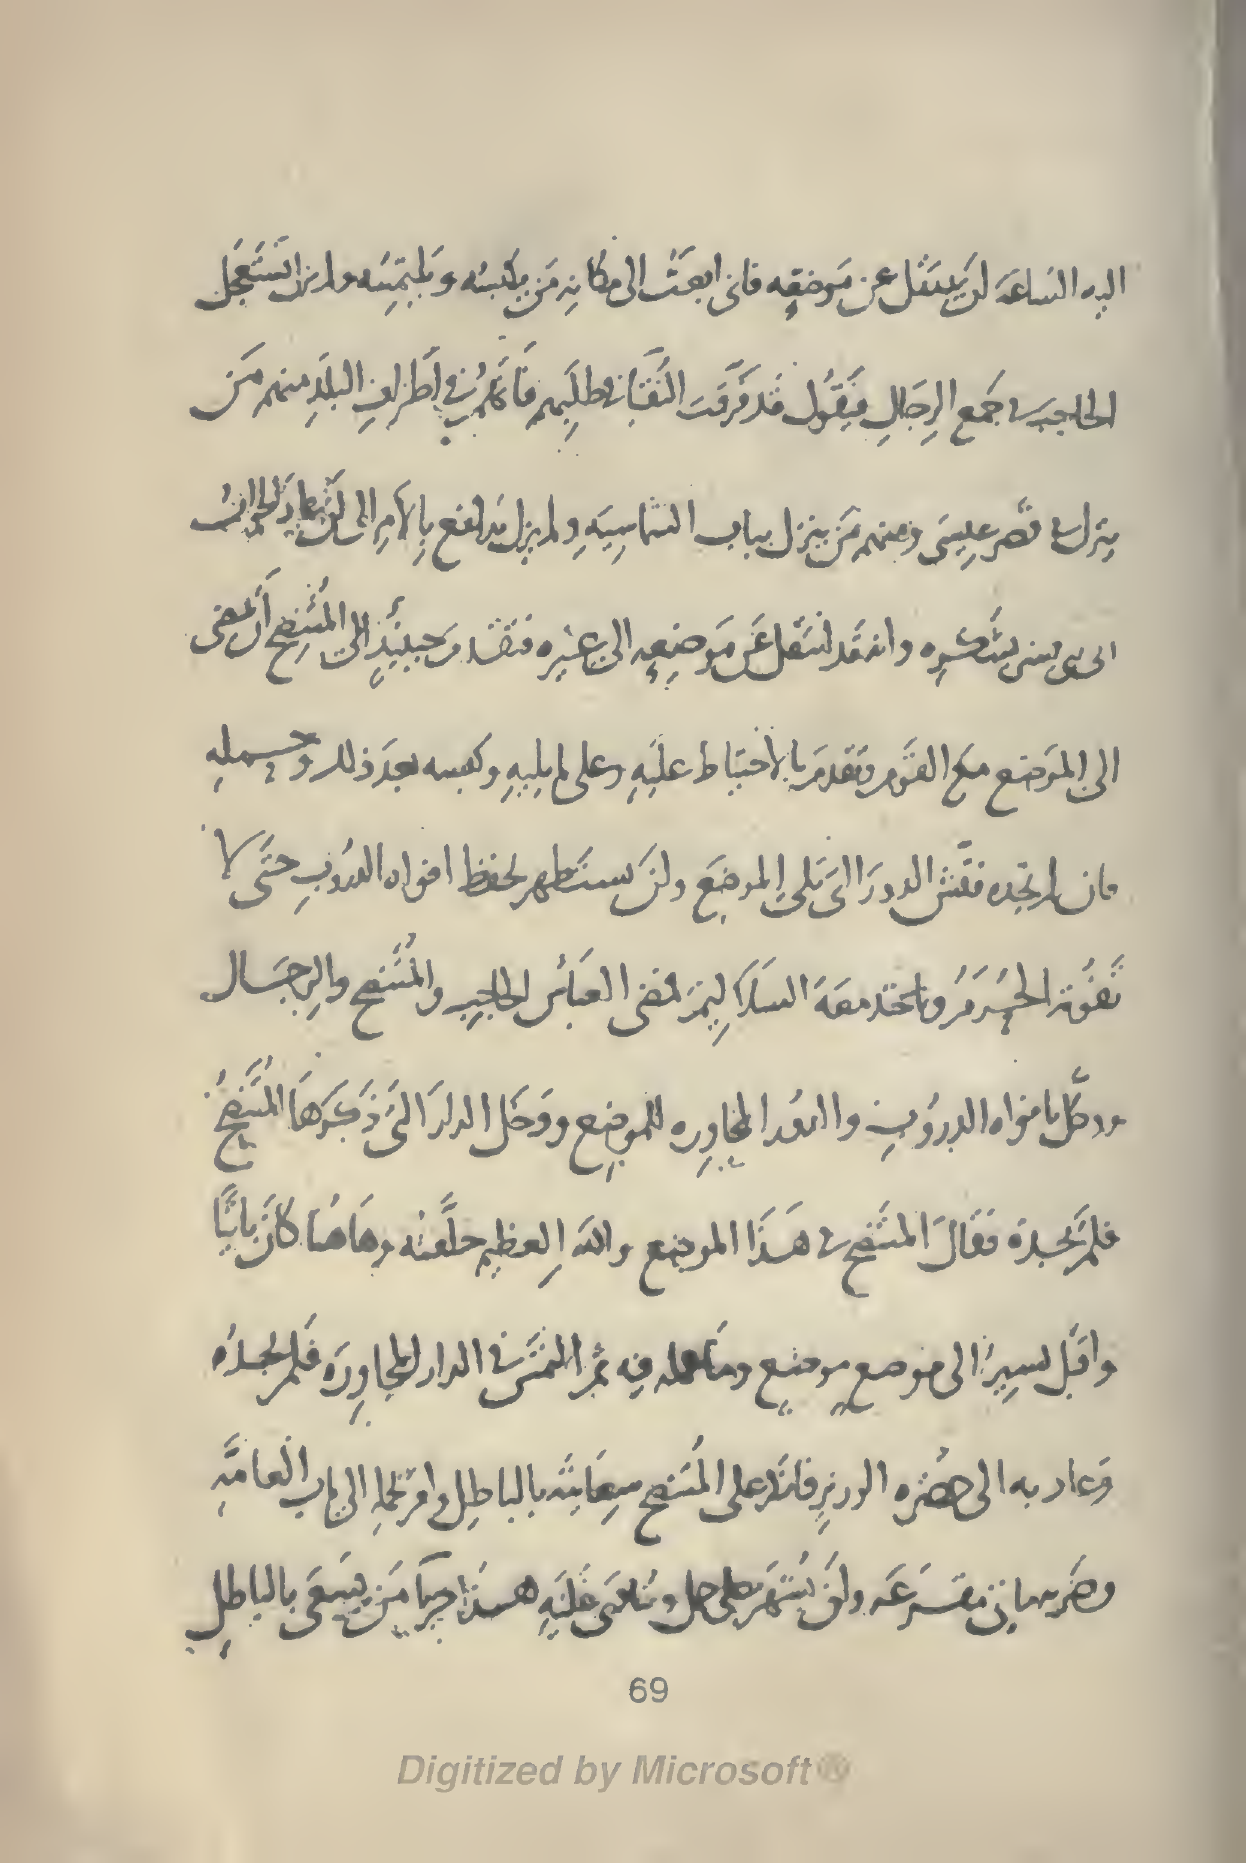 اليه الساعة لن ينتقل عن موضعه فانى ابعث الى مكانه من يكبسه ويلتمسه ولم يزل يستعجل
الحاجب فى جمع الرجال فيقول قد فرقت النقبا فى طلبهم فانهم فى اطراف البلد منهم من
ينزل فى قصر عيسى ومنهم من ينزل بباب الشماسيه ولم يزل يدافع بالامر الى ان عاد الجواب
الى بستره وانه قد انتقل عن موضعه الى غيره فتقدم حينئذ الى المتنصح ان يمضى
الى الموضع مع القوم وتقدم بالاحتياط عليه وعلى ما يليه وكبسه بعد ذلك وحمله
فان لم تجده ففتش الدور التى تلى الموضع وان يستظهر بحفظ افواه الدروب حتى لا
تفوته الحزم وياخذ معه السلاليم فمضى العباس الحاجب والمتنصح والرجال
ووكل بافواه الدروب والدور المجاوره للموضع ودخل الدار التى ذكرها المتنصح
فلم يجده فقال المتنصح فى هذا الموضع والله العظيم خلفته وهاهنا كان بايتا
واقبل يسير الى موضع موضع وما عمله فيه ثم التمس فى الدار المجاوره فلم يجده
وعاد به الى حضره الوزير فانكر على المتنصح سعايته بالباطل وامر بحمله الى باب العامه
وضربه مقرعه وان يشهر على جمل وينادى عليه هذا جزا من يسعى بالباطل
69
Digitized by Microsoft®